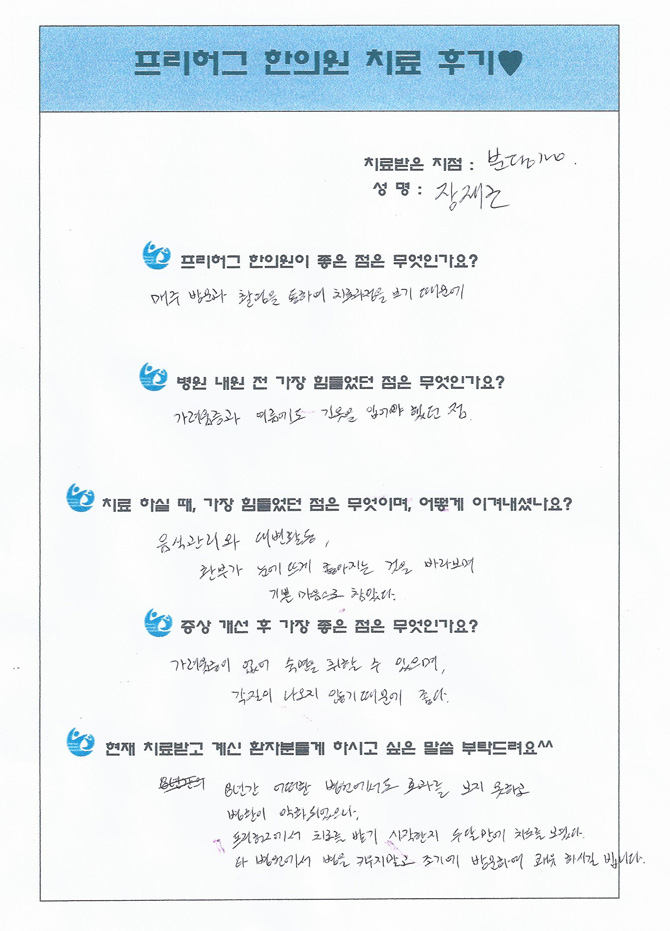 프리허그 한의원 치료 후기♥
치료받은 지점 : 분당점.
성 명 : 장재근
프리허그 한의원이 좋은 점은 무엇인가요?
매주 방문과 촬영을 통하여 치료과정을 보기 때문에
병원 내원 전 가장 힘들었던 점은 무엇인가요?
가려움증과 여름에도 긴옷을 입어야 했던 점.
치료 하실 때, 가장 힘들었던 점은 무엇이며, 어떻게 이겨내셨나요?
음식관리와 대변활동,
환부가 눈에 띄게 좋아지는 것을 바라보며
기쁜 마음으로 참았다.
증상 개선 후 가장 좋은 점은 무엇인가요?
가려움증이 없어 숙면을 취할 수 있으며,
각질이 나오지 않기때문에 좋다.
현재 치료받고 계신 환자분들께 하시고 싶은 말씀 부탁드려요^^
8년간 어떠한 병원에서도 효과를 보지 못하고
병환이 악화되었으나,
프리허그에서 치료를 받기 시작한지 수달만에 치료를 보았다.
타 병원에서 병을 키우지말고 조기에 방문하여 쾌유 하시길 빕니다.